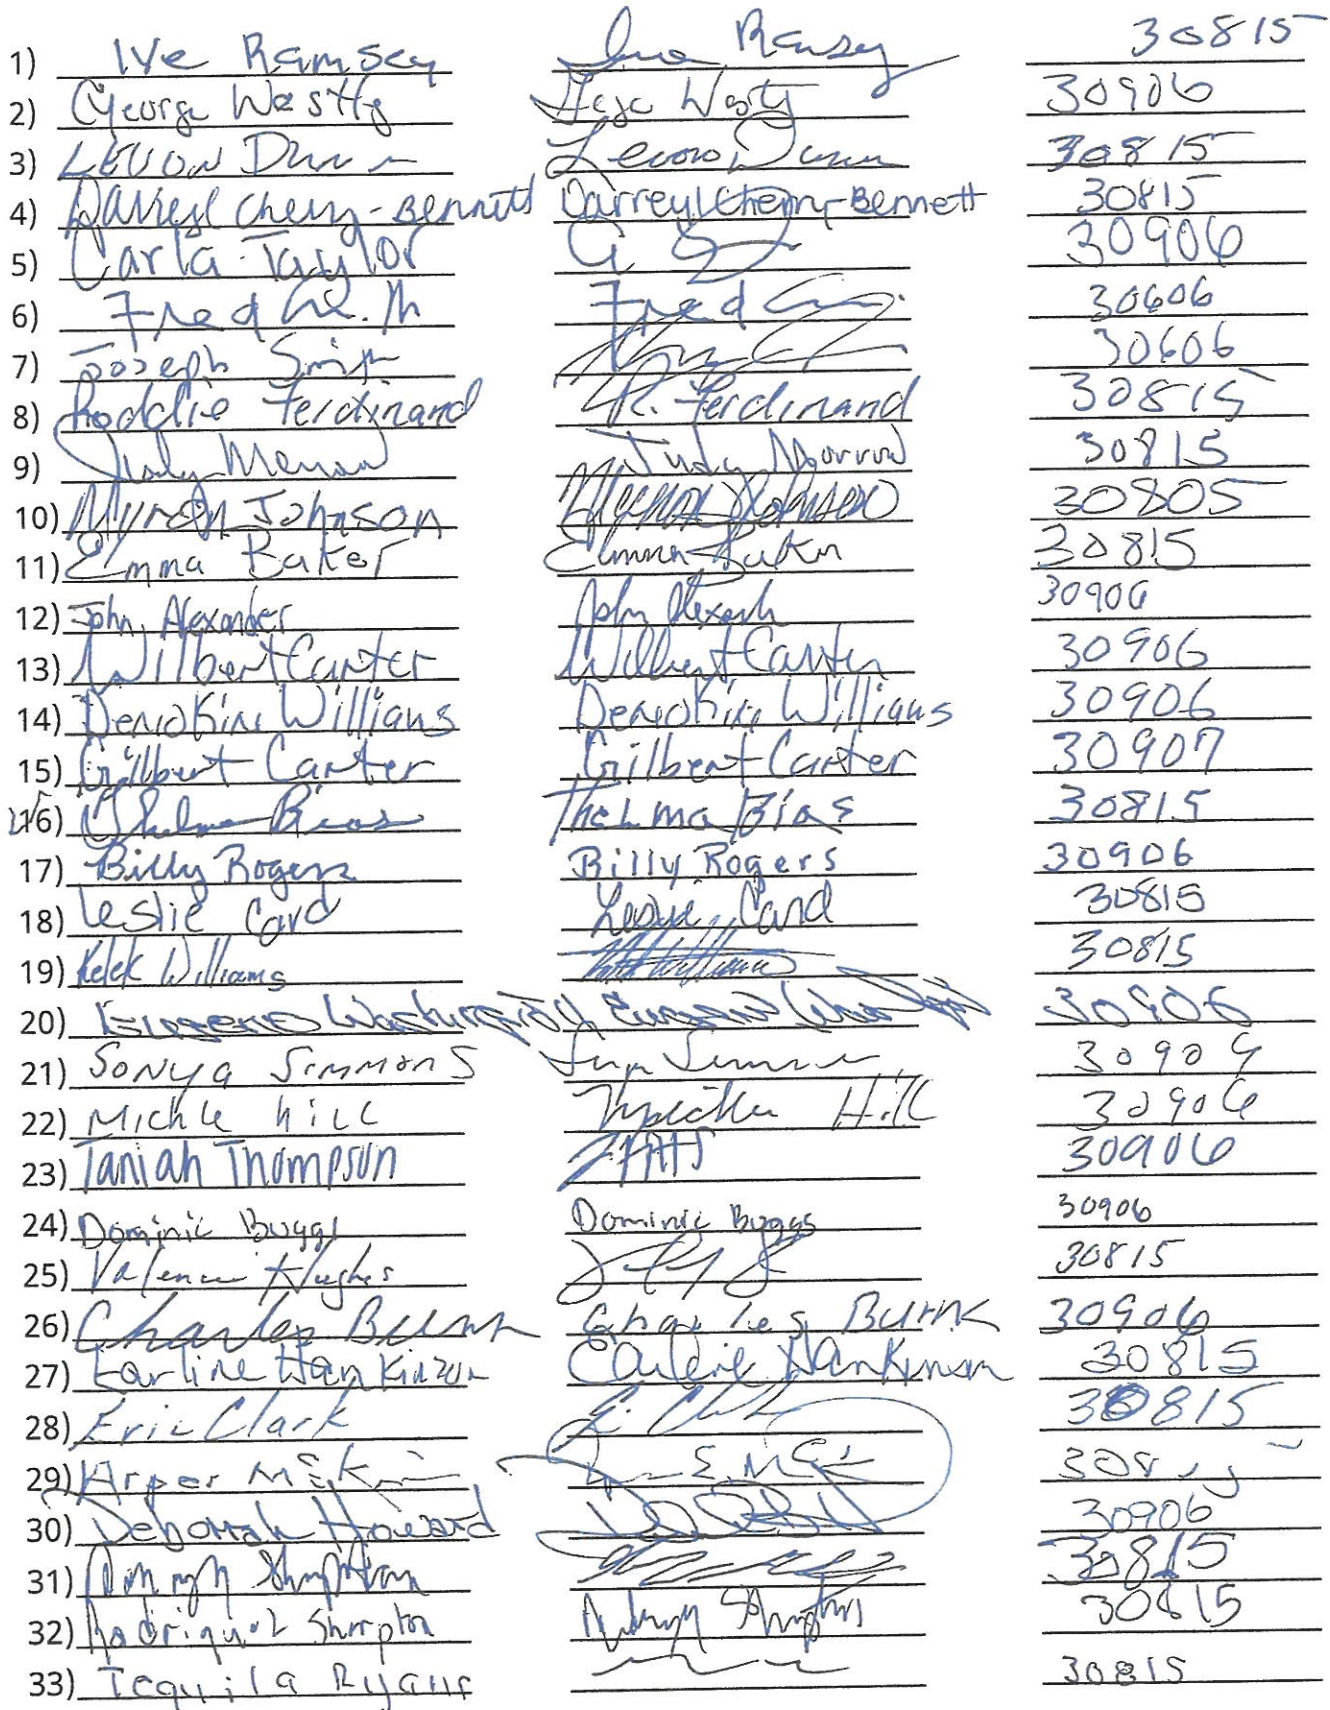 1) Ive Ramsey Ive Ramsey 30815
2) George Westly 30906
3) LEVON Dunn Levon Dunn 30815
4) Darreyl Cherry-Bennett Darreyl Cherry-Bennett 30815
5) Carla Taylor 30906
6) Fred Fred 30606
7) Joseph Smith 30606
8) Roddie Ferdinand R. Ferdinand 30815
9) Judy Morrow Judy Morrow 30815
10) Myron Johnson Myron Johnson 30805
11) Emma Baker Emma Baker 30815
12) John Alexander John Alexander 30906
13) Wilbert Carter Wilbert Carter 30906
14) Williams Williams 30906
15) Gilbert Carter Gilbert Carter 30907
16) Thelma Bias Thelma Bias 30815
17) Billy Rogers Billy Rogers 30906
18) Leslie Card Leslie Card 30815
19) Kelek Williams Williams 30815
20) 30906
21) Sonya Simmons 30904
22) Michle Hill Hill 30906
23) Taniah Thompson 30906
24) Dominic Buggs Dominic Buggs 30906
25) Hughes 30815
26) Charles Burnk Charles Burnk 30906
27) Earline Hankinson Earline Hankinson 30815
28) Eric Clark E. 30815
29) Arper
30) Deborah Howard 30906
31) 30815
32) Sharpton 30815
33) Tequila 30815